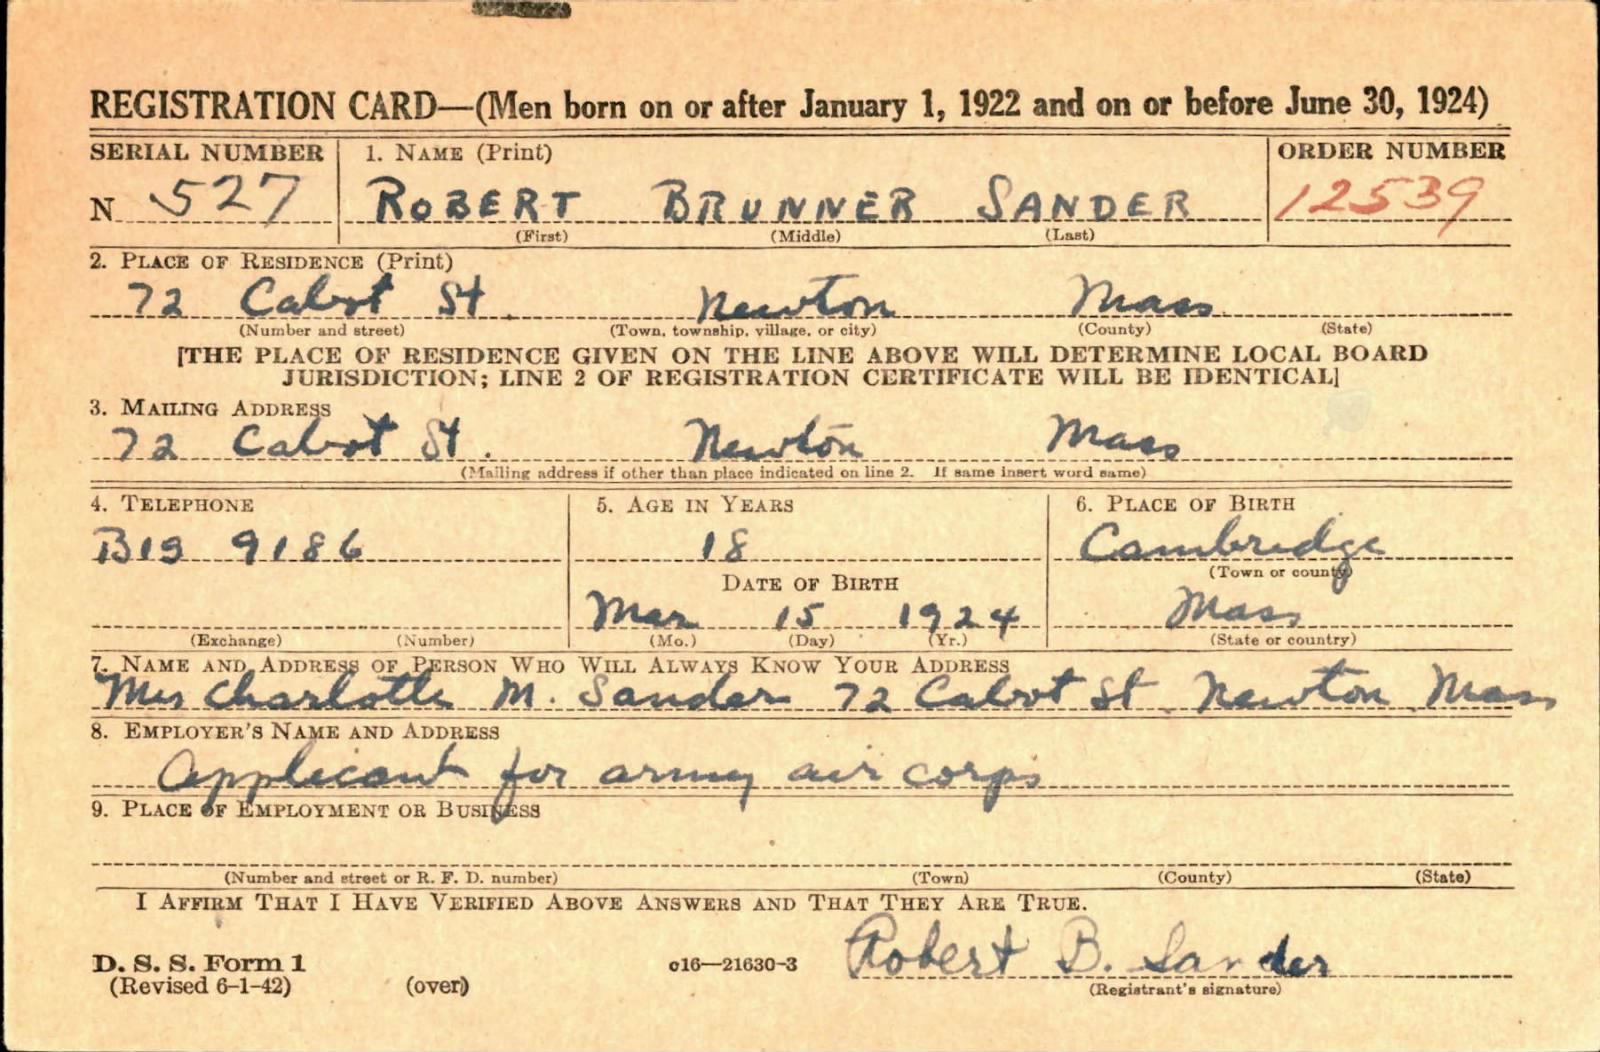 REGISTRATION CARD—(Men born on or after January 1, 1922 and on or before June 30, 1924)
SERIAL NUMBER 1. NAME (Print) ORDER NUMBER
N 527 ROBERT BRUNNER SANDER 12539
(First) (Middle) (Last)
2. PLACE OF RESIDENCE (Print)
72 Cabot St. Newton Mass
(Number and street) (Town, township, village, or city) (County) (State)
[THE PLACE OF RESIDENCE GIVEN ON THE LINE ABOVE WILL DETERMINE LOCAL BOARD
JURISDICTION; LINE 2 OF REGISTRATION CERTIFICATE WILL BE IDENTICAL]
3. MAILING ADDRESS
72 Cabot St. Newton Mass
(Mailing address if other than place indicated on line 2. If same insert word same)
4. TELEPHONE 5. AGE IN YEARS 6. PLACE OF BIRTH
BIG 9186 18 Cambridge
(Town or county)
DATE OF BIRTH
Mar 15 1924 Mass
(Exchange) (Number) (Mo.) (Day) (Yr.) (State or country)
7. NAME AND ADDRESS OF PERSON WHO WILL ALWAYS KNOW YOUR ADDRESS
Mrs Charlotte M. Sander 72 Cabot St. Newton Mass
8. EMPLOYER'S NAME AND ADDRESS
Applicant for army air corps
9. PLACE OF EMPLOYMENT OR BUSINESS
(Number and street or R. F. D. number) (Town) (County) (State)
I AFFIRM THAT I HAVE VERIFIED ABOVE ANSWERS AND THAT THEY ARE TRUE.
D. S. S. Form 1 c16—21630-3 Robert B. Sander
(Revised 6-1-42) (over) (Registrant's signature)